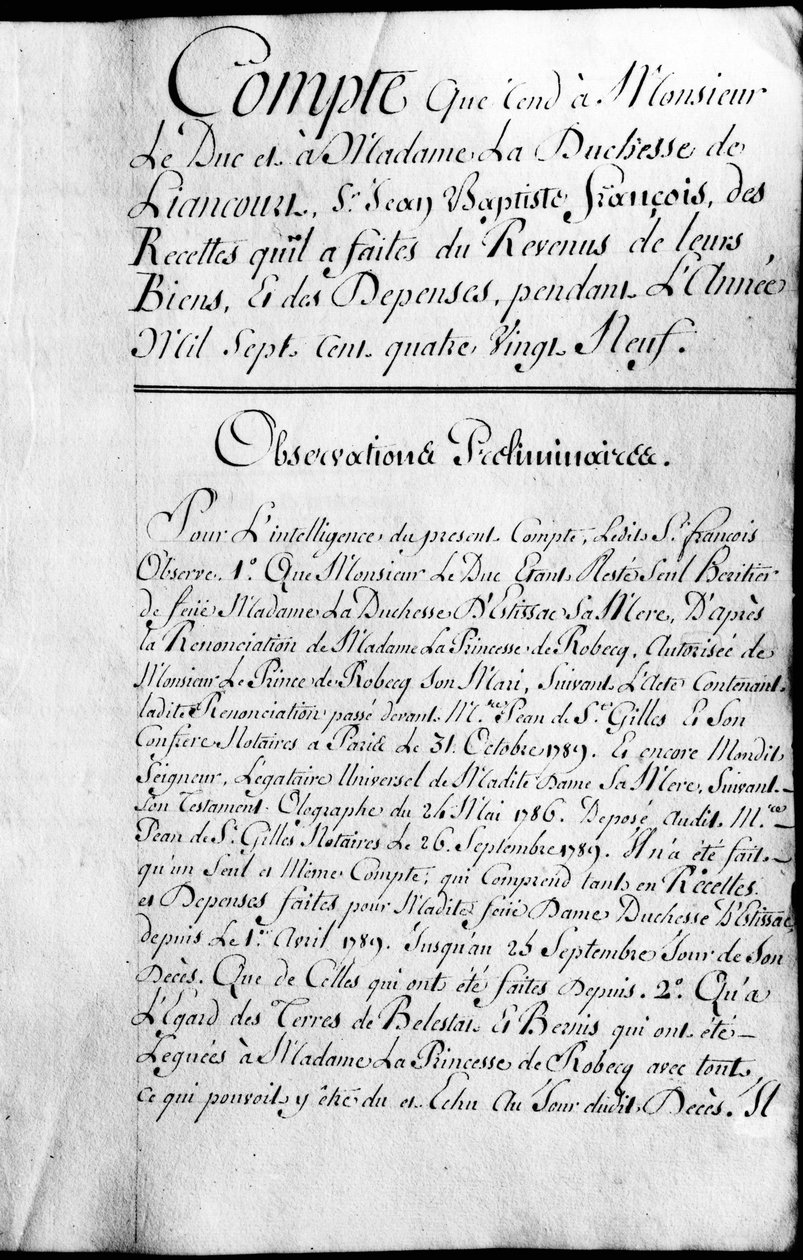 Compte Que rend à Monsieur
Le Duc et à Madame La Duchesse de
Liancourt, Sr. Jean Baptiste françois, des
Recettes qu'il a faites du Revenus de leurs
Biens, Et des Depenses, pendant L'Année
Mil Sept Cent quatre Vingt Neuf.
Observations Préliminaires.
Pour L'intelligence du present Compte, Ledit Sr. françois
Observe. 1º. Que Monsieur Le Duc Etant Resté Seul Heritier
de feüe Madame La Duchesse D'Estissac Sa Mere, D'après
la Renonciation de Madame La Princesse de Robecq, Autorisée de
Monsieur Le Prince de Robecq Son Mari, Suivant L'Acte Contenant
ladite Renonciation passé devant M.re Pean de St. Gilles Et Son
Confrere Notaires a Paris Le 31. Octobre 1789. Et encore Mondit
Seigneur, Legataire Universel de Madite Dame Sa Mere, Suivant
Son Testament Olographe du 24 Mai 1786. Deposé Audit M.re
Pean de St. Gilles Notaires Le 26. Septembre 1789. Il n'a été fait
qu'un Seul et Même Compte, qui Comprend tant en Recettes
et Depenses faites pour Madite feüe Dame Duchesse D'Estissac
depuis Le 1.er Avril 1789. Jusqu'au 25 Septembre Jour de Son
Decès. Que de Celles qui ont été faites Depuis. 2º. Qu'a
L'Egard des Terres de Belestat Et Bernis qui ont été
Leguées à Madame La Princesse de Robecq avec tout
ce qui pouvoit y être du et Echu Au Jour dudit Decès. Il